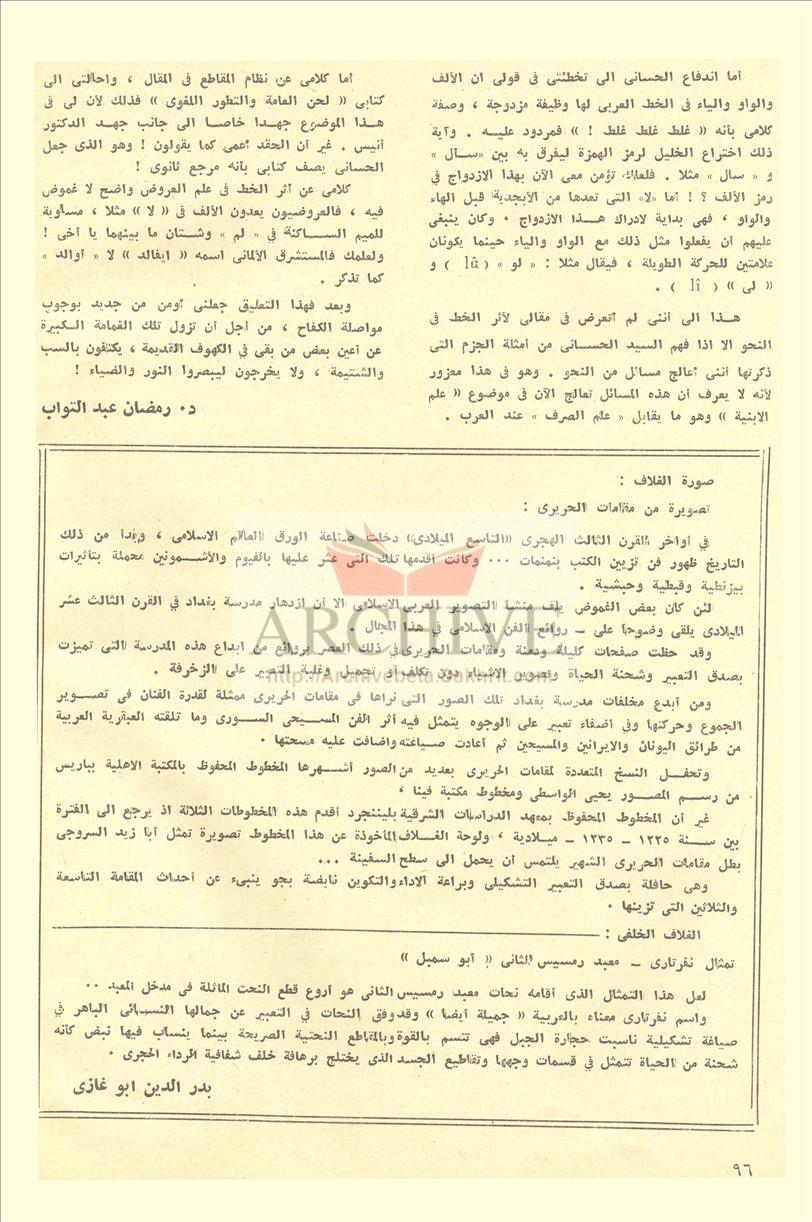 أما اندفاع الحسانى الى تخطئتى فى قولى ان الألف
والواو والياء فى الخط العربى لها وظيفة مزدوجة ، وصفة
كلامى بأنه « غلط غلط غلط ! » فمردود عليه . وآية
ذلك اختراع الخليل لرمز الهمزة ليفرق به بين «سال »
و « سال » مثلا . فلعلك تؤمن معى الآن بهذا الازدواج فى
رمز الألف ؟ ! أما «لا» التى تعدها من الأبجدية قبل الهاء
والواو ، فهى بداية لادراك هذا الازدواج ، وكان ينبغى
عليهم أن يفعلوا مثل ذلك مع الواو والياء حينما يكونان
علامتين للحركة الطويلة ، فيقال مثلا : « لو » ( lû ) و
« لى » ( lî ) .
هذا الى أننى لم أتعرض فى مقالى لأثر الخط فى
النحو الا اذا فهم السيد الحسانى من أمثلة الجزم التى
ذكرتها أننى أعالج مسائل من النحو . وهو فى هذا معزور
لأنه لا يعرف أن هذه المسائل تعالج الآن فى موضوع « علم
الابنية » وهو ما يقابل « علم الصرف » عند العرب .
أما كلامى عن نظام المقاطع فى المقال ، واحالتى الى
كتابى « لحن العامة والتطور اللغوى » فذلك لأن لى فى
هذا الموضوع جهدا خاصا الى جانب جهد الدكتور
أنيس . غير أن الحقد أعمى كما يقولون ! وهو الذى جعل
الحسانى يصف كتابى بأنه مرجع ثانوى !
كلامى عن أثر الخط فى علم العروض واضح لا غموض
فيه ، فالعروضيون يعدون الألف فى « لا » مثلا ، مساوية
للميم الساكنة في « لم » وشتان ما بينهما يا أخى !
ولعلمك فالمستشرق الألمانى اسمه « ايفالد » لا « أوالد »
كما تذكر .
وبعد فهذا التعليق جعلنى أومن من جديد بوجوب
مواصلة الكفاح ، من أجل أن تزول تلك الغمامة الكبيرة
عن أعين بعض من بقى فى الكهوف القديمة ، يكتفون بالسب
والشتيمة ، ولا يخرجون ليبصروا النور والضياء !
د. رمضان عبد التواب
صورة الغلاف :
تصويرة من مقامات الحريرى :
في أواخر القرن الثالث الهجرى «التاسع الميلادى» دخلت صناعة الورق العالم الاسلامى ، وبدأ من ذلك
التاريخ ظهور فن تزيين الكتب بنمنمات ... وكانت أقدمها تلك التى عثر عليها بالفيوم والأشمونين محملة بتأثيرات
بيزنطية وقبطية وحبشية .
لئن كان بعض الغموض يلف منشأ التصوير العربى الاسلامى الا أن ازدهار مدرسة بغداد في القرن الثالث عشر
الميلادى يلقى وضوحا على – روائع الفن الاسلامى في هذا المجال .
وقد حظت صفحات كليلة ودمنة ومقامات الحريرى في ذلك العصر بروائع من ابداع هذه المدرسة التى تميزت
بصدق التعبير وشحنة الحياة وتصوير الاشياء دون تكلف أو تجميل وغلبة التعبير على الزخرفة .
ومن أبدع مخلفات مدرسة بغداد تلك الصور التى نراها فى مقامات الحريرى ممثلة لقدرة الفنان فى تصوير
الجموع وحركتها وفي اضفاء تعبير على الوجوه يتمثل فيه أثر الفن المسيحى السورى وما تلقته العبقرية العربية
من طرائق اليونان والايرانين والمسيحين ثم أعادت صياغته واضافت عليه مسحتها .
وتحفل النسخ المتعددة لمقامات الحريرى بعديد من الصور أشهرها المخطوط المحفوظ بالمكتبة الاهلية بباريس
من رسم المصور يحيى الواسطى ومخطوط مكتبة فينا ،
غير أن المخطوط المحفوظ بمعهد الدراسات الشرقية بليننجرد أقدم هذه المخطوطات الثلاثة اذ يرجع الى الفترة
بين سنة ١٢٢٥ – ١٢٣٥ – ميلادية ، ولوحة الغلاف المأخوذة عن هذا المخطوط تصويرة تمثل أبا زيد السروجى
بطل مقامات الحريرى الشهير يلتمس أن يحمل الى سطح السفينة ...
وهى حافلة بصدق التعبير التشكيلى وبراعة الاداء والتكوين نابضة بجو ينبىء عن أحداث المقامة التاسعة
والثلاثين التى تزينها .
الغلاف الخلفى :
تمثال نفرتارى – معبد رمسيس الثانى « أبو سمبل »
لعل هذا التمثال الذى أقامه نحات معبد رمسيس الثانى هو أروع قطع النحت الماثلة فى مدخل المعبد ..
واسم نفرتارى معناه بالعربية « جميلة أيضا » وقد وفق النحات في التعبير عن جمالها النسائى الباهر في
صياغة تشكيلية ناسبت حجارة الجبل فهى تتسم بالقوة وبالمقاطع النحتية الصريحة بينما ينساب فيها نبض كأنه
شحنة من الحياة تتمثل في قسمات وجهها وتقاطيع الجسد الذى يختلج برهافة خلف شفافية الرداء الحجرى .
بدر الدين ابو غازى
ARCHIVE
http://Archivebeta.Sakhrit.com
٩٦